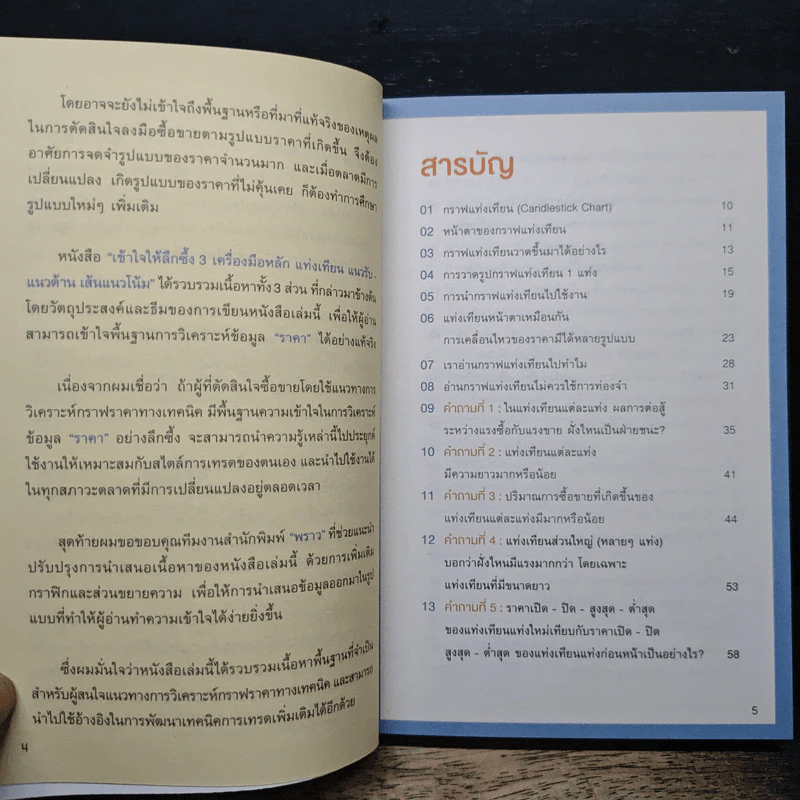 โดยอาจจะยังไม่เข้าใจถึงพื้นฐานหรือที่มาที่แท้จริงของเหตุผล
ในการตัดสินใจลงมือซื้อขายตามรูปแบบราคาที่เกิดขึ้น จึงต้อง
อาศัยการจดจำรูปแบบของราคาจำนวนมาก และเมื่อตลาดมีการ
เปลี่ยนแปลง เกิดรูปแบบของราคาที่ไม่คุ้นเคย ก็ต้องทำการศึกษา
รูปแบบใหม่ๆ เพิ่มเติม
หนังสือ "เข้าใจให้ลึกซึ้ง 3 เครื่องมือหลัก แท่งเทียน แนวรับ-
แนวต้าน เส้นแนวโน้ม" ได้รวบรวมเนื้อหาทั้ง 3 ส่วน ที่กล่าวมาข้างต้น
โดยวัตถุประสงค์และธีมของการเขียนหนังสือเล่มนี้ เพื่อให้ผู้อ่าน
สามารถเข้าใจพื้นฐานการวิเคราะห์ข้อมูล "ราคา" ได้อย่างแท้จริง
เนื่องจากผมเชื่อว่า ถ้าผู้ที่ตัดสินใจซื้อขายโดยใช้แนวทางการ
วิเคราะห์กราฟราคาทางเทคนิค มีพื้นฐานความเข้าใจในการวิเคราะห์
ข้อมูล "ราคา" อย่างลึกซึ้ง จะสามารถนำความรู้เหล่านี้ไปประยุกต์
ใช้งานให้เหมาะสมกับสไตล์การเทรดของตนเอง และนำไปใช้งานได้
ในทุกสภาวะตลาดที่มีการเปลี่ยนแปลงอยู่ตลอดเวลา
สุดท้ายผมขอขอบคุณทีมงานสำนักพิมพ์ "พราว" ที่ช่วยแนะนำ
ปรับปรุงการนำเสนอเนื้อหาของหนังสือเล่มนี้ ด้วยการเพิ่มเติม
กราฟิกและส่วนขยายความ เพื่อให้การนำเสนอข้อมูลออกมาในรูป
แบบที่ทำให้ผู้อ่านทำความเข้าใจได้ง่ายยิ่งขึ้น
ซึ่งผมมั่นใจว่าหนังสือเล่มนี้ได้รวบรวมเนื้อหาพื้นฐานที่จำเป็น
สำหรับผู้สนใจแนวทางการวิเคราะห์กราฟราคาทางเทคนิค และสามารถ
นำไปใช้อ้างอิงในการพัฒนาเทคนิคการเทรดเพิ่มเติมได้อีกด้วย
4
สารบัญ
01 กราฟแท่งเทียน (Candlestick Chart) 10
02 หน้าตาของกราฟแท่งเทียน 11
03 กราฟแท่งเทียนวาดขึ้นมาได้อย่างไร 13
04 การวาดรูปกราฟแท่งเทียน 1 แท่ง 15
05 การนำกราฟแท่งเทียนไปใช้งาน 19
06 แท่งเทียนหน้าตาเหมือนกัน
การเคลื่อนไหวของราคามีได้หลายรูปแบบ 23
07 เราอ่านกราฟแท่งเทียนไปทำไม 28
08 อ่านกราฟแท่งเทียนไม่ควรใช้การท่องจำ 31
09 คำถามที่ 1 : ในแท่งเทียนแต่ละแท่ง ผลการต่อสู้
ระหว่างแรงซื้อกับแรงขาย ฝั่งไหนเป็นฝ่ายชนะ? 35
10 คำถามที่ 2 : แท่งเทียนแต่ละแท่ง
มีความยาวมากหรือน้อย 41
11 คำถามที่ 3 : ปริมาณการซื้อขายที่เกิดขึ้นของ
แท่งเทียนแต่ละแท่งมีมากหรือน้อย 44
12 คำถามที่ 4 : แท่งเทียนส่วนใหญ่ (หลายๆ แท่ง)
บอกว่าฝั่งไหนมีแรงมากกว่า โดยเฉพาะ
แท่งเทียนที่มีขนาดยาว 53
13 คำถามที่ 5 : ราคาเปิด - ปิด - สูงสุด - ต่ำสุด
ของแท่งเทียนแท่งใหม่เทียบกับราคาเปิด - ปิด
สูงสุด - ต่ำสุด ของแท่งเทียนแท่งก่อนหน้าเป็นอย่างไร? 58
5